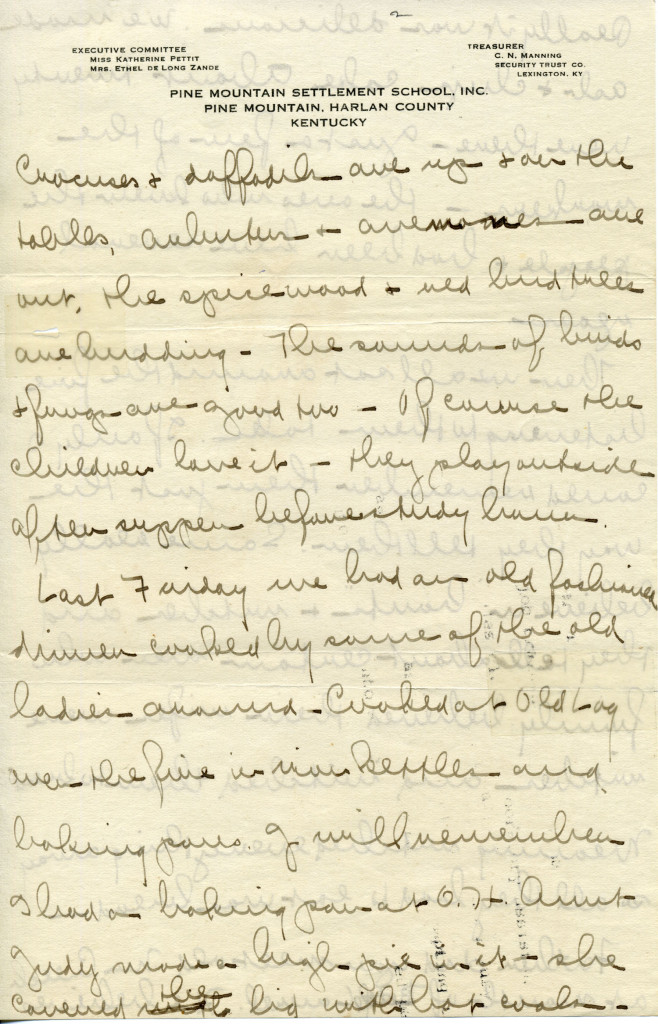 2
EXECUTIVE COMMITTEE
MISS KATHERINE PETTIT
MRS. ETHEL DE LONG ZANDE
TREASURER
C. N. MANNING
SECURITY TRUST CO.
LEXINGTON, KY
PINE MOUNTAIN SETTLEMENT SCHOOL, INC.
PINE MOUNTAIN, HARLAN COUNTY
KENTUCKY
Crocuses & daffodils are up & on the
tables, arbutus & anemones are
out, the spicewood & red bud trees
are budding - The sounds of birds
& frogs are good too - Of course the
children love it - they play outside
after supper before study hour.
Last Friday we had an old fashioned
dinner cooked by some of the old
ladies around - Cooked at Old Log
over the fire in iron kettles and
baking pans. I will remember
I had a baking pan at O. H. Aunt
Judy made a big pie in it - she
covered the lid with hot coals -